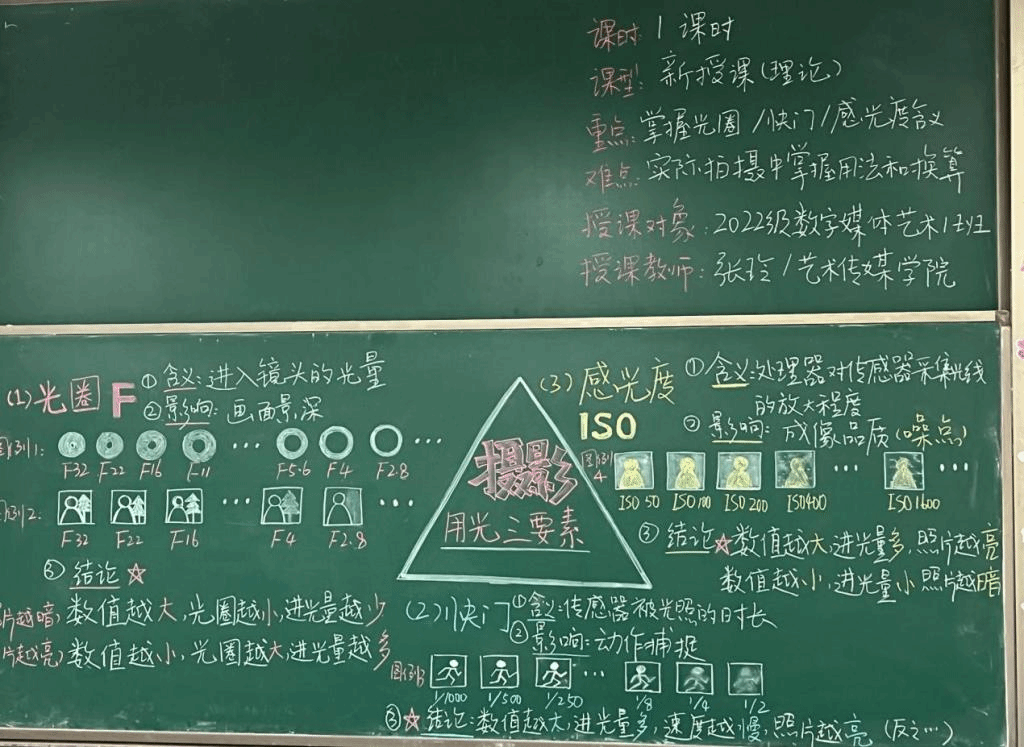 课时: 1 课时
课型: 新授课(理论)
重点: 掌握光圈/快门/感光度含义
难点: 实际拍摄中掌握用法和换算
授课对象: 2022级数字媒体艺术1班
授课教师: 张玲/艺术传媒学院
(1)光圈 F
①含义:进入镜头的光量
②影响:画面景深
图例1:
F32 F22 F16 F11 … F5.6 F4 F2.8 …
图例2:
F32 F22 F16 … F4 F2.8
③结论☆
片越暗) 数值越大,光圈越小,进光量越少
片越亮) 数值越小,光圈越大,进光量越多
摄影
用光三要素
(2)快门
①含义:传感器被光照的时长
②影响:动作捕捉
图例3
1/1000 1/500 1/250 … 1/8 1/4 1/2
③☆结论:数值越大,进光量多,速度越慢,照片越亮 (反之…)
(3)感光度
ISO
①含义:处理器对传感器采集光线
的放大程度
②影响:成像品质(噪点)
图例4
ISO 50 ISO 100 ISO 200 ISO400 … ISO1600 …
③结论☆数值越大,进光量多,照片越亮
数值越小,进光量小 照片越暗